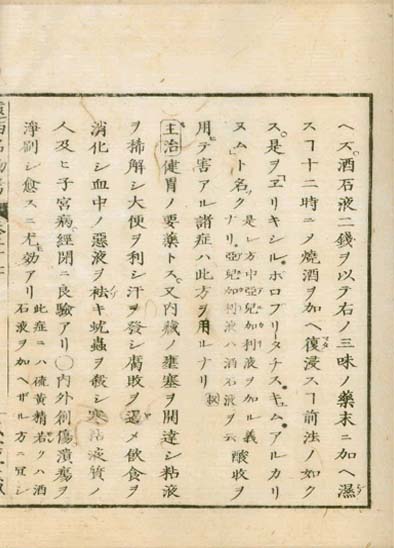 ヘズ。酒石液二錢ヲ以テ右ノ三味ノ藥末ニ加ヘ濕
スコ十二時ニシテ燒酒ヲ加ヘ復浸スコ前法ノ如ク
ス。是ヲエリキシル。ホロプリタチス。キュム。アルカリ
ヌムト名クナリ。是レ方中亞兒加利液ヲ加ル義
亞兒加利液ハ酒石液ヲ云
酸收ヲ
用テ害アル諸症ハ此方ヲ用ルナリ
主治健胃ノ要藥トス。又内臓ノ壅塞ヲ開達シ粘液
ヲ稀解シ大便ヲ利シ汗ヲ發シ腐敗ヲ遏メ飲食ヲ
消化シ血中ノ惡液ヲ袪キ蚘蟲ヲ殺シ寒粘液質ノ
人及ヒ子宮病經閉ニ良驗アリ〇内外創傷潰瘍ヲ
淨刷シ愈スニ尤效アリ
此症ニハ硫黄精若クハ酒
石液ヲ加ヘザル方ニ宜シ